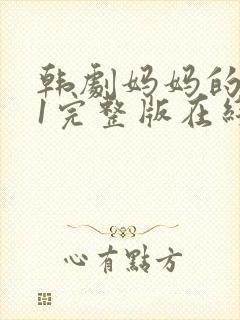 韩劇妈妈的
1完整版在
心有點方